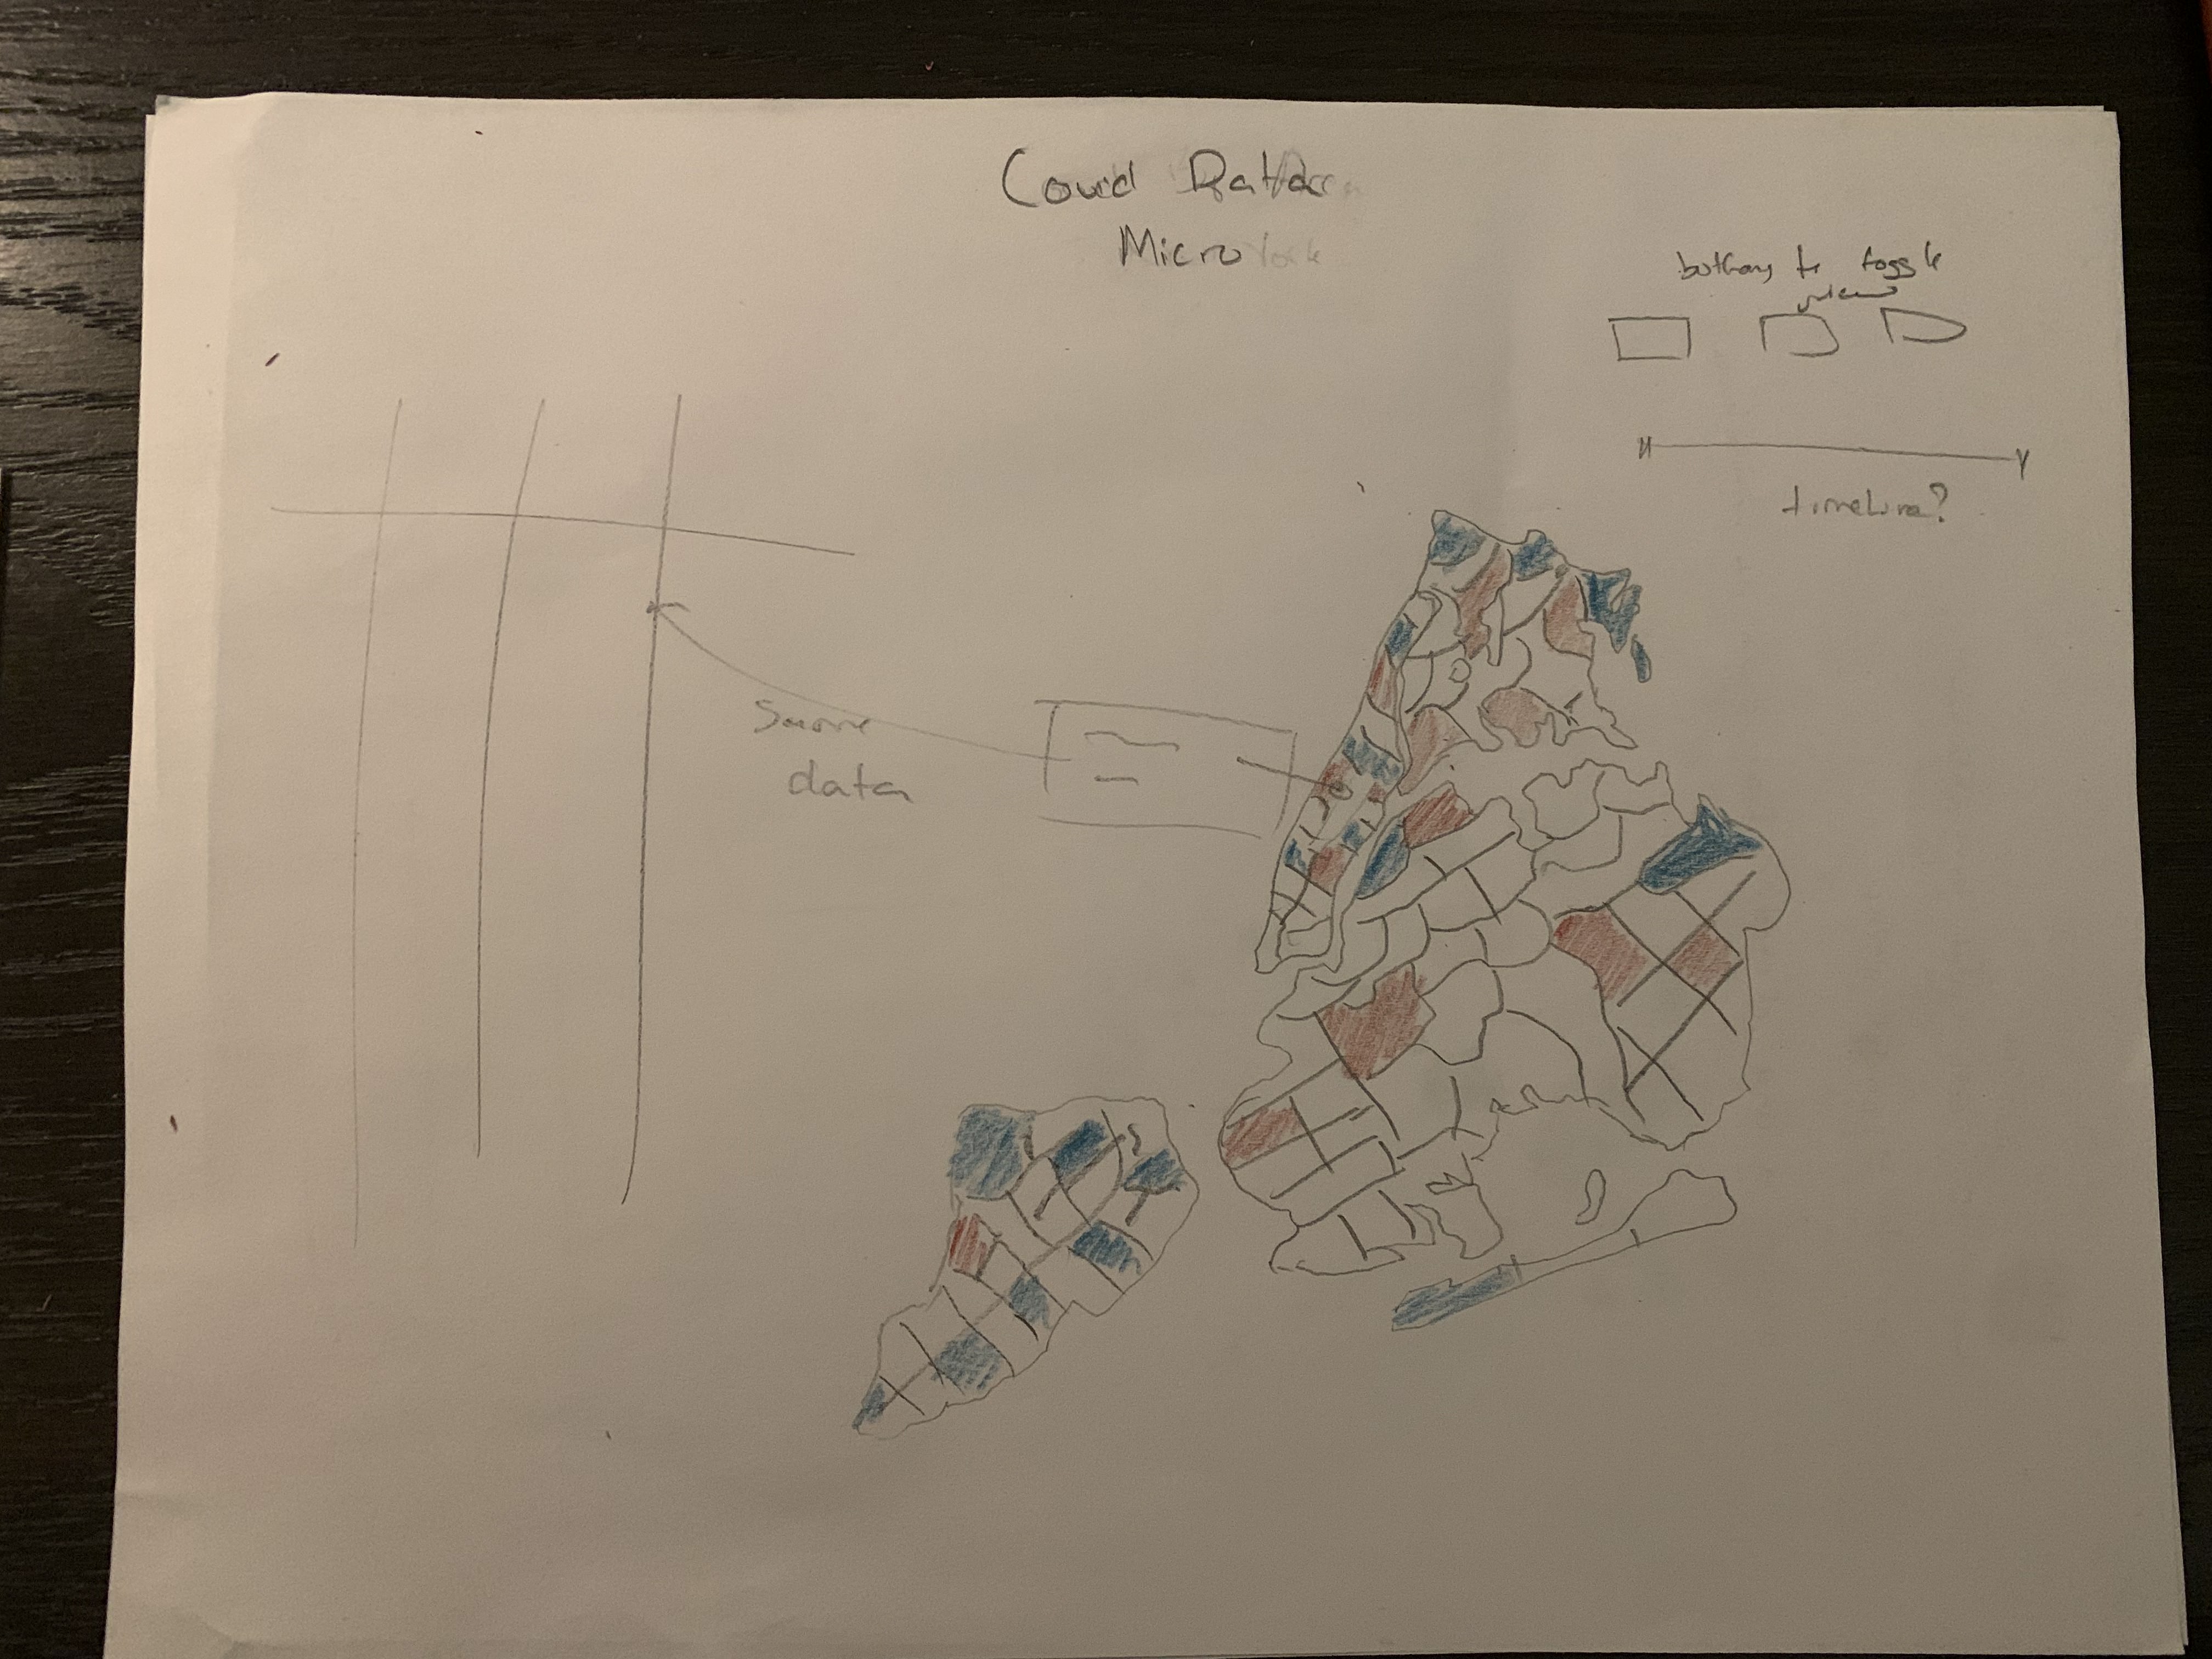 Covid Pattern
Micro look
buttons to toggle
view
timeline?
Same
data